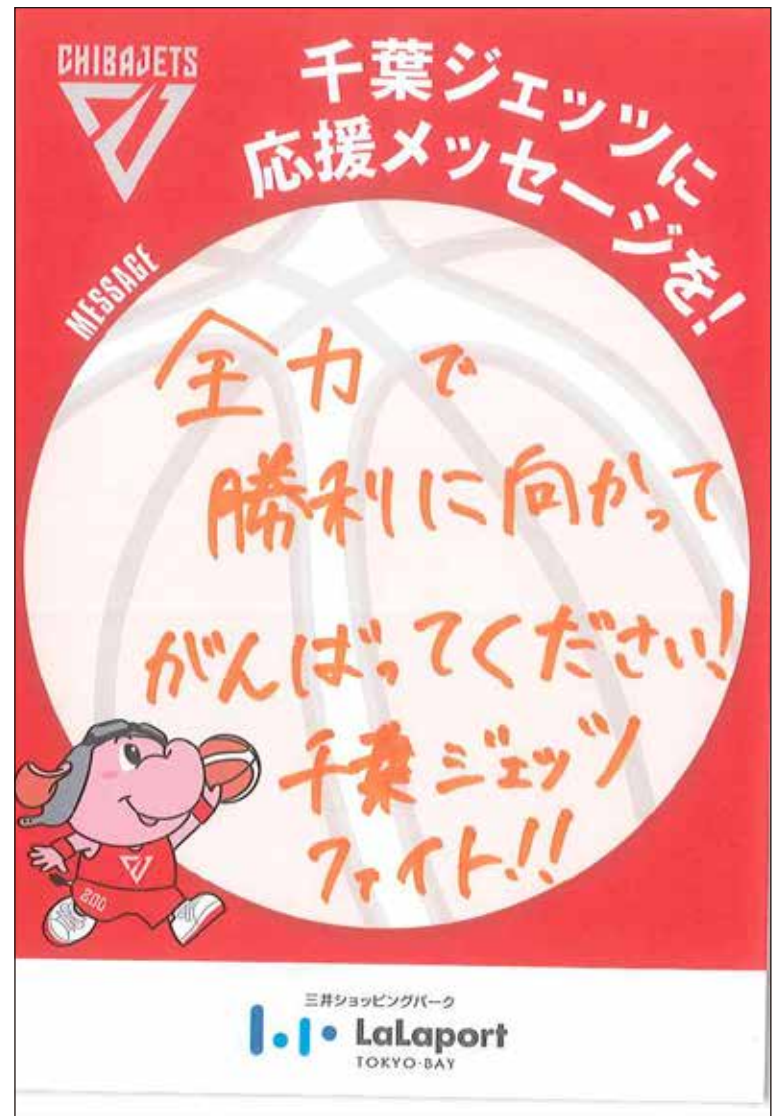 CHIBAJETS
千葉ジェッツに
応援メッセージを!
MESSAGE
全力で
勝利に向かって
がんばってください!
千葉ジェッツ
ファイト!!
200
三井ショッピングパーク
LaLaport
TOKYO-BAY